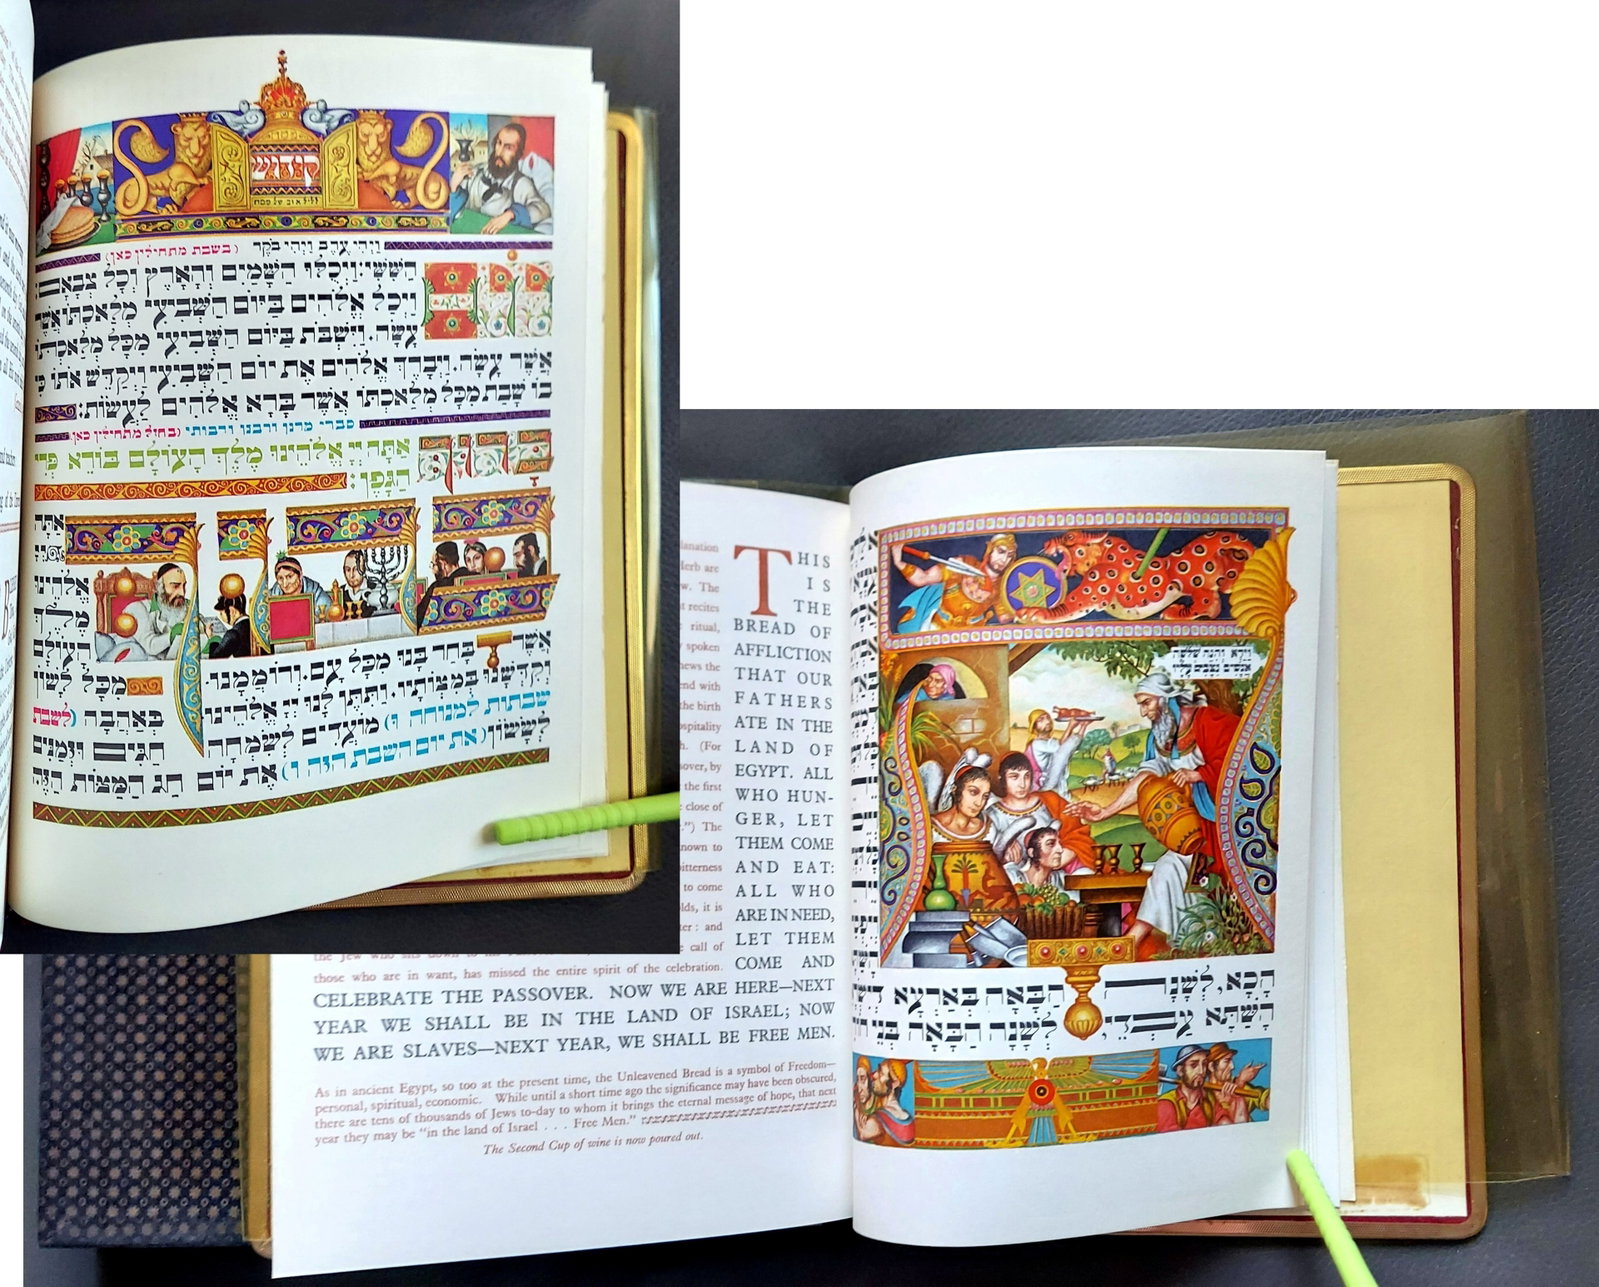 קדש
לליל א׳ וב׳ של פסח
(בשבת מתחילין כאן) וַיְהִי עֶרֶב וַיְהִי בֹקֶר
יוֹם
הַשִּׁשִּׁי: וַיְכֻלּוּ הַשָּׁמַיִם וְהָאָרֶץ וְכָל צְבָאָם:
וַיְכַל אֱלֹהִים בַּיּוֹם הַשְּׁבִיעִי מְלַאכְתּוֹ אֲשֶׁר
עָשָׂה. וַיִּשְׁבֹּת בַּיּוֹם הַשְּׁבִיעִי מִכָּל מְלַאכְתּוֹ
אֲשֶׁר עָשָׂה. וַיְבָרֶךְ אֱלֹהִים אֶת יוֹם הַשְּׁבִיעִי וַיְקַדֵּשׁ אֹתוֹ כִּי
בוֹ שָׁבַת מִכָּל מְלַאכְתּוֹ אֲשֶׁר בָּרָא אֱלֹהִים לַעֲשׂוֹת:
(בחול מתחילין כאן) סברי מרנן ורבנן ורבותי
בָּרוּךְ
אַתָּה יְיָ אֱלֹהֵינוּ מֶלֶךְ הָעוֹלָם בּוֹרֵא פְּרִי
הַגָּפֶן:
אַתָּה
יְיָ
אֱלֹהֵינוּ
מֶלֶךְ
הָעוֹלָם
אֲשֶׁר בָּחַר בָּנוּ מִכָּל עָם. וְרוֹמְמָנוּ
מִכָּל לָשׁוֹן וְקִדְּשָׁנוּ בְּמִצְוֹתָיו. וַתִּתֶּן לָנוּ יְיָ אֱלֹהֵינוּ
בְּאַהֲבָה (לשבת שַׁבָּתוֹת לִמְנוּחָה וּ) מוֹעֲדִים לְשִׂמְחָה
חַגִּים וּזְמַנִּים לְשָׂשׂוֹן (אֶת יוֹם הַשַּׁבָּת הַזֶּה וְ)
אֶת יוֹם חַג הַמַּצּוֹת הַזֶּה
THIS
IS
THE
BREAD OF
AFFLICTION
THAT OUR
FATHERS
ATE IN THE
LAND OF
EGYPT. ALL
WHO HUN-
GER, LET
THEM COME
AND EAT:
ALL WHO
ARE IN NEED,
LET THEM
COME AND
CELEBRATE THE PASSOVER. NOW WE ARE HERE—NEXT
YEAR WE SHALL BE IN THE LAND OF ISRAEL; NOW
WE ARE SLAVES—NEXT YEAR, WE SHALL BE FREE MEN.
lanation
erb are
w. The
recites
ritual,
spoken
news the
end with
the birth
spitality
h. (For
sover, by
the first
close of
.") The
nown to
itterness
to come
lds, it is
ter: and
call of
those who are in want, has missed the entire spirit of the celebration.
As in ancient Egypt, so too at the present time, the Unleavened Bread is a symbol of Freedom—
personal, spiritual, economic. While until a short time ago the significance may have been obscured,
there are tens of thousands of Jews to-day to whom it brings the eternal message of hope, that next
year they may be "in the land of Israel . . . Free Men."
The Second Cup of wine is now poured out.
וירא והנה שלשה
אנשים נצבים עליו
הָכָא, לְשָׁנָה הַבָּאָה בְּאַרְעָא
הָשַׁתָּא עַבְדֵי, לְשָׁנָה הַבָּאָה בְּנֵי